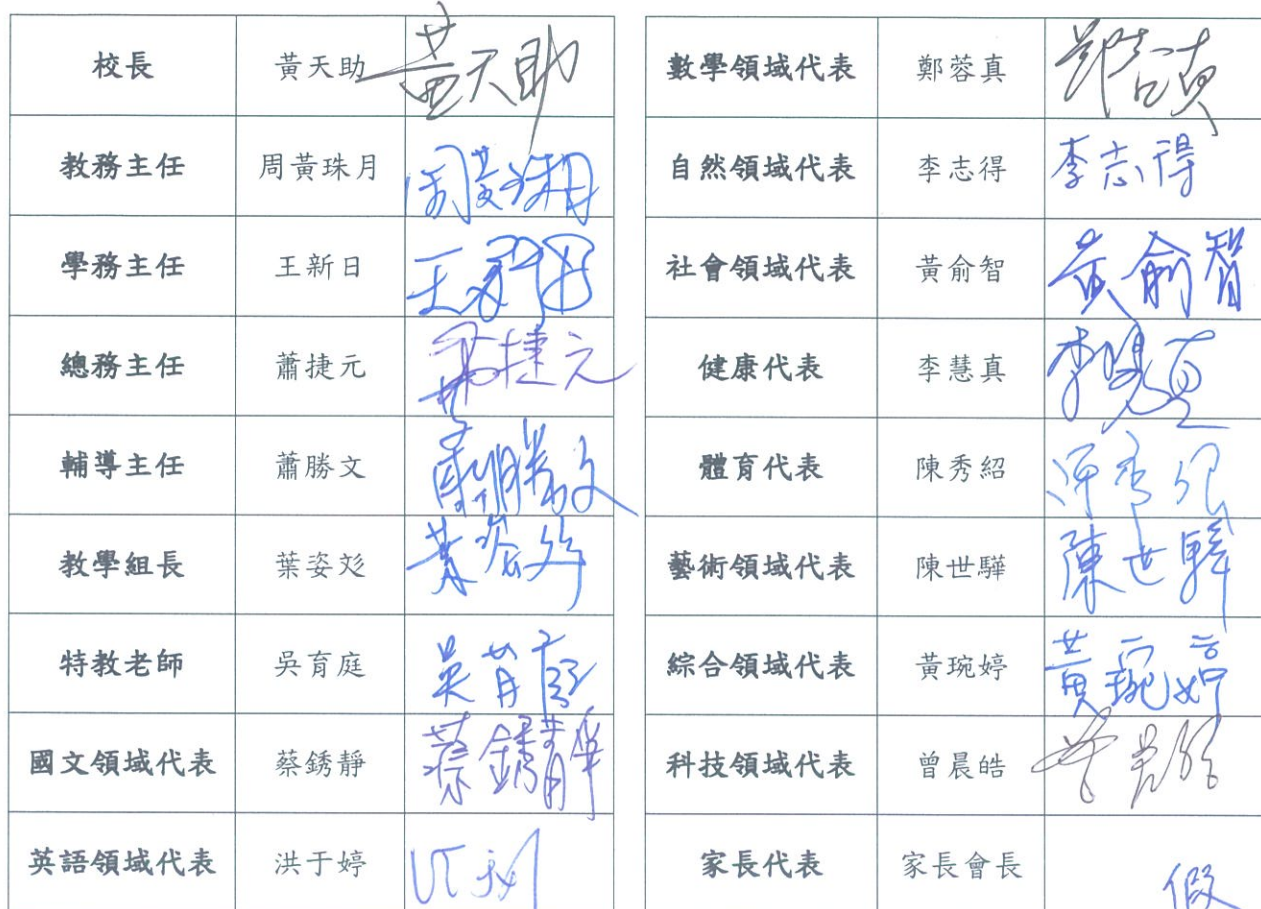 校長 黃天助 黃天助
教務主任 周黃珠月 周黃珠月
學務主任 王新日 王新日
總務主任 蕭捷元 蕭捷元
輔導主任 蕭勝文 蕭勝文
教學組長 葉姿彣 葉姿彣
特教老師 吳育庭 吳育庭
國文領域代表 蔡銹靜 蔡銹靜
英語領域代表 洪于婷
數學領域代表 鄭蓉真
自然領域代表 李志得 李志得
社會領域代表 黃俞智 黃俞智
健康代表 李慧真 李慧真
體育代表 陳秀紹 陳秀紹
藝術領域代表 陳世驊 陳世驊
綜合領域代表 黃琬婷 黃琬婷
科技領域代表 曾晨皓
家長代表 家長會長 假